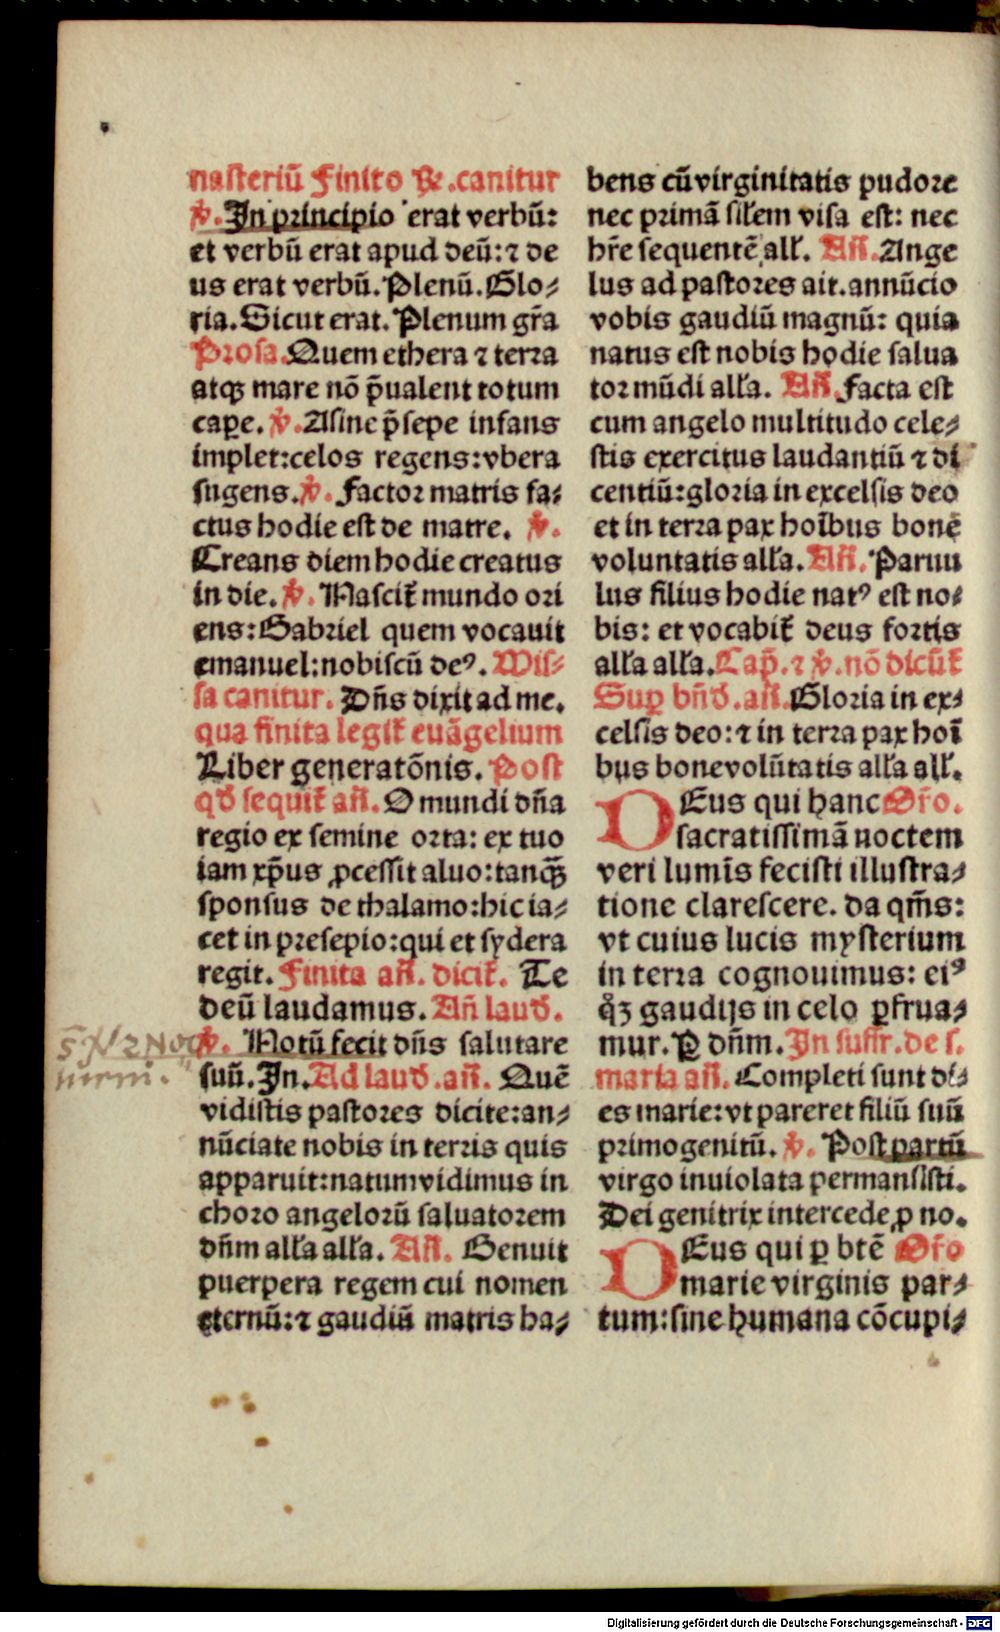 nasteriū Finito ℟.canitur
℣. In principio erat verbū:
et verbū erat apud deū:⁊ de
us erat verbū. Plenū. Glo⸗
ria. Sicut erat. Plenum gr̄a
Prosa. Quem ethera ⁊ terra
atqꝫ mare nō p̄ualent totum
capere. ℣. Asine p̄sepe infans
implet:celos regens:vbera
sugens. ℣. Factor matris fa⸗
ctus hodie est de matre. ℣.
Creans diem hodie creatus
in die. ℣. Nascit᷑ mundo ori
ens:Gabriel quem vocauit
emanuel:nobiscū deꝰ. Mis⸗
sa canitur. Dn̄s dixit ad me.
qua finita legit᷑ euāgelium
Liber generatōnis. Post
qd̄ sequit᷑ an̄. O mundi dn̄a
regio ex semine orta: ex tuo
iam xp̄us ꝓcessit aluo:tanqꝫ
sponsus de thalamo:hic ia⸗
cet in presepio:qui et sydera
regit. Finita an̄. dicit᷑. Te
deū laudamus. An̄ laud̄.
℣. Notū fecit dn̄s salutare
suū. In. Ad laud̄.an̄. Quē
vidistis pastores dicite:an⸗
nūciate nobis in terris quis
apparuit:natum vidimus in
choro angelorū saluatorem
dn̄m alła alła. An̄. Genuit
puerpera regem cui nomen
eternū:⁊ gaudiū matris ha⸗
bens cū virginitatis pudore
nec primā silem visa est: nec
hr̄e sequentē all̄. An̄. Ange
lus ad pastores ait.annūcio
vobis gaudiū magnū: quia
natus est nobis hodie salua
tor mūdi alła. An̄. Facta est
cum angelo multitudo cele⸗
stis exercitus laudantiū ⁊ di
centiū:gloria in excelsis deo
et in terra pax hoībus bone
voluntatis alła. An̄. Paruu
lus filius hodie natꝰ est no⸗
bis: et vocabit᷑ deus fortis
alła alła. Cap̄. ⁊ ℣. nō dicūt᷑
Suꝑ bn̄d̄.an̄. Gloria in ex⸗
celsis deo:⁊ in terra pax hoī
bus bone volūtatis alła all̄.
DEus qui hanc Or̄o.
sacratissimā noctem
veri lumīs fecisti illustra⸗
tione clarescere. da qm̄s:
vt cuius lucis mysterium
in terra cognouimus: eiꝰ
qꝫ gaudijs in celo ꝑfrua⸗
mur. Ꝑ dn̄m. In suffr. de s.
maria an̄. Completi sunt di⸗
es marie:vt pareret filiū suū
primogenitū. ℣. Post partū
virgo inuiolata permansisti.
Dei genitrix intercede ꝓ no.
DEus qui ꝑ btē Or̄o
marie virginis par⸗
tum:sine humana cōcupi⸗
Digitalisierung gefördert durch die Deutsche Forschungsgemeinschaft - DFG